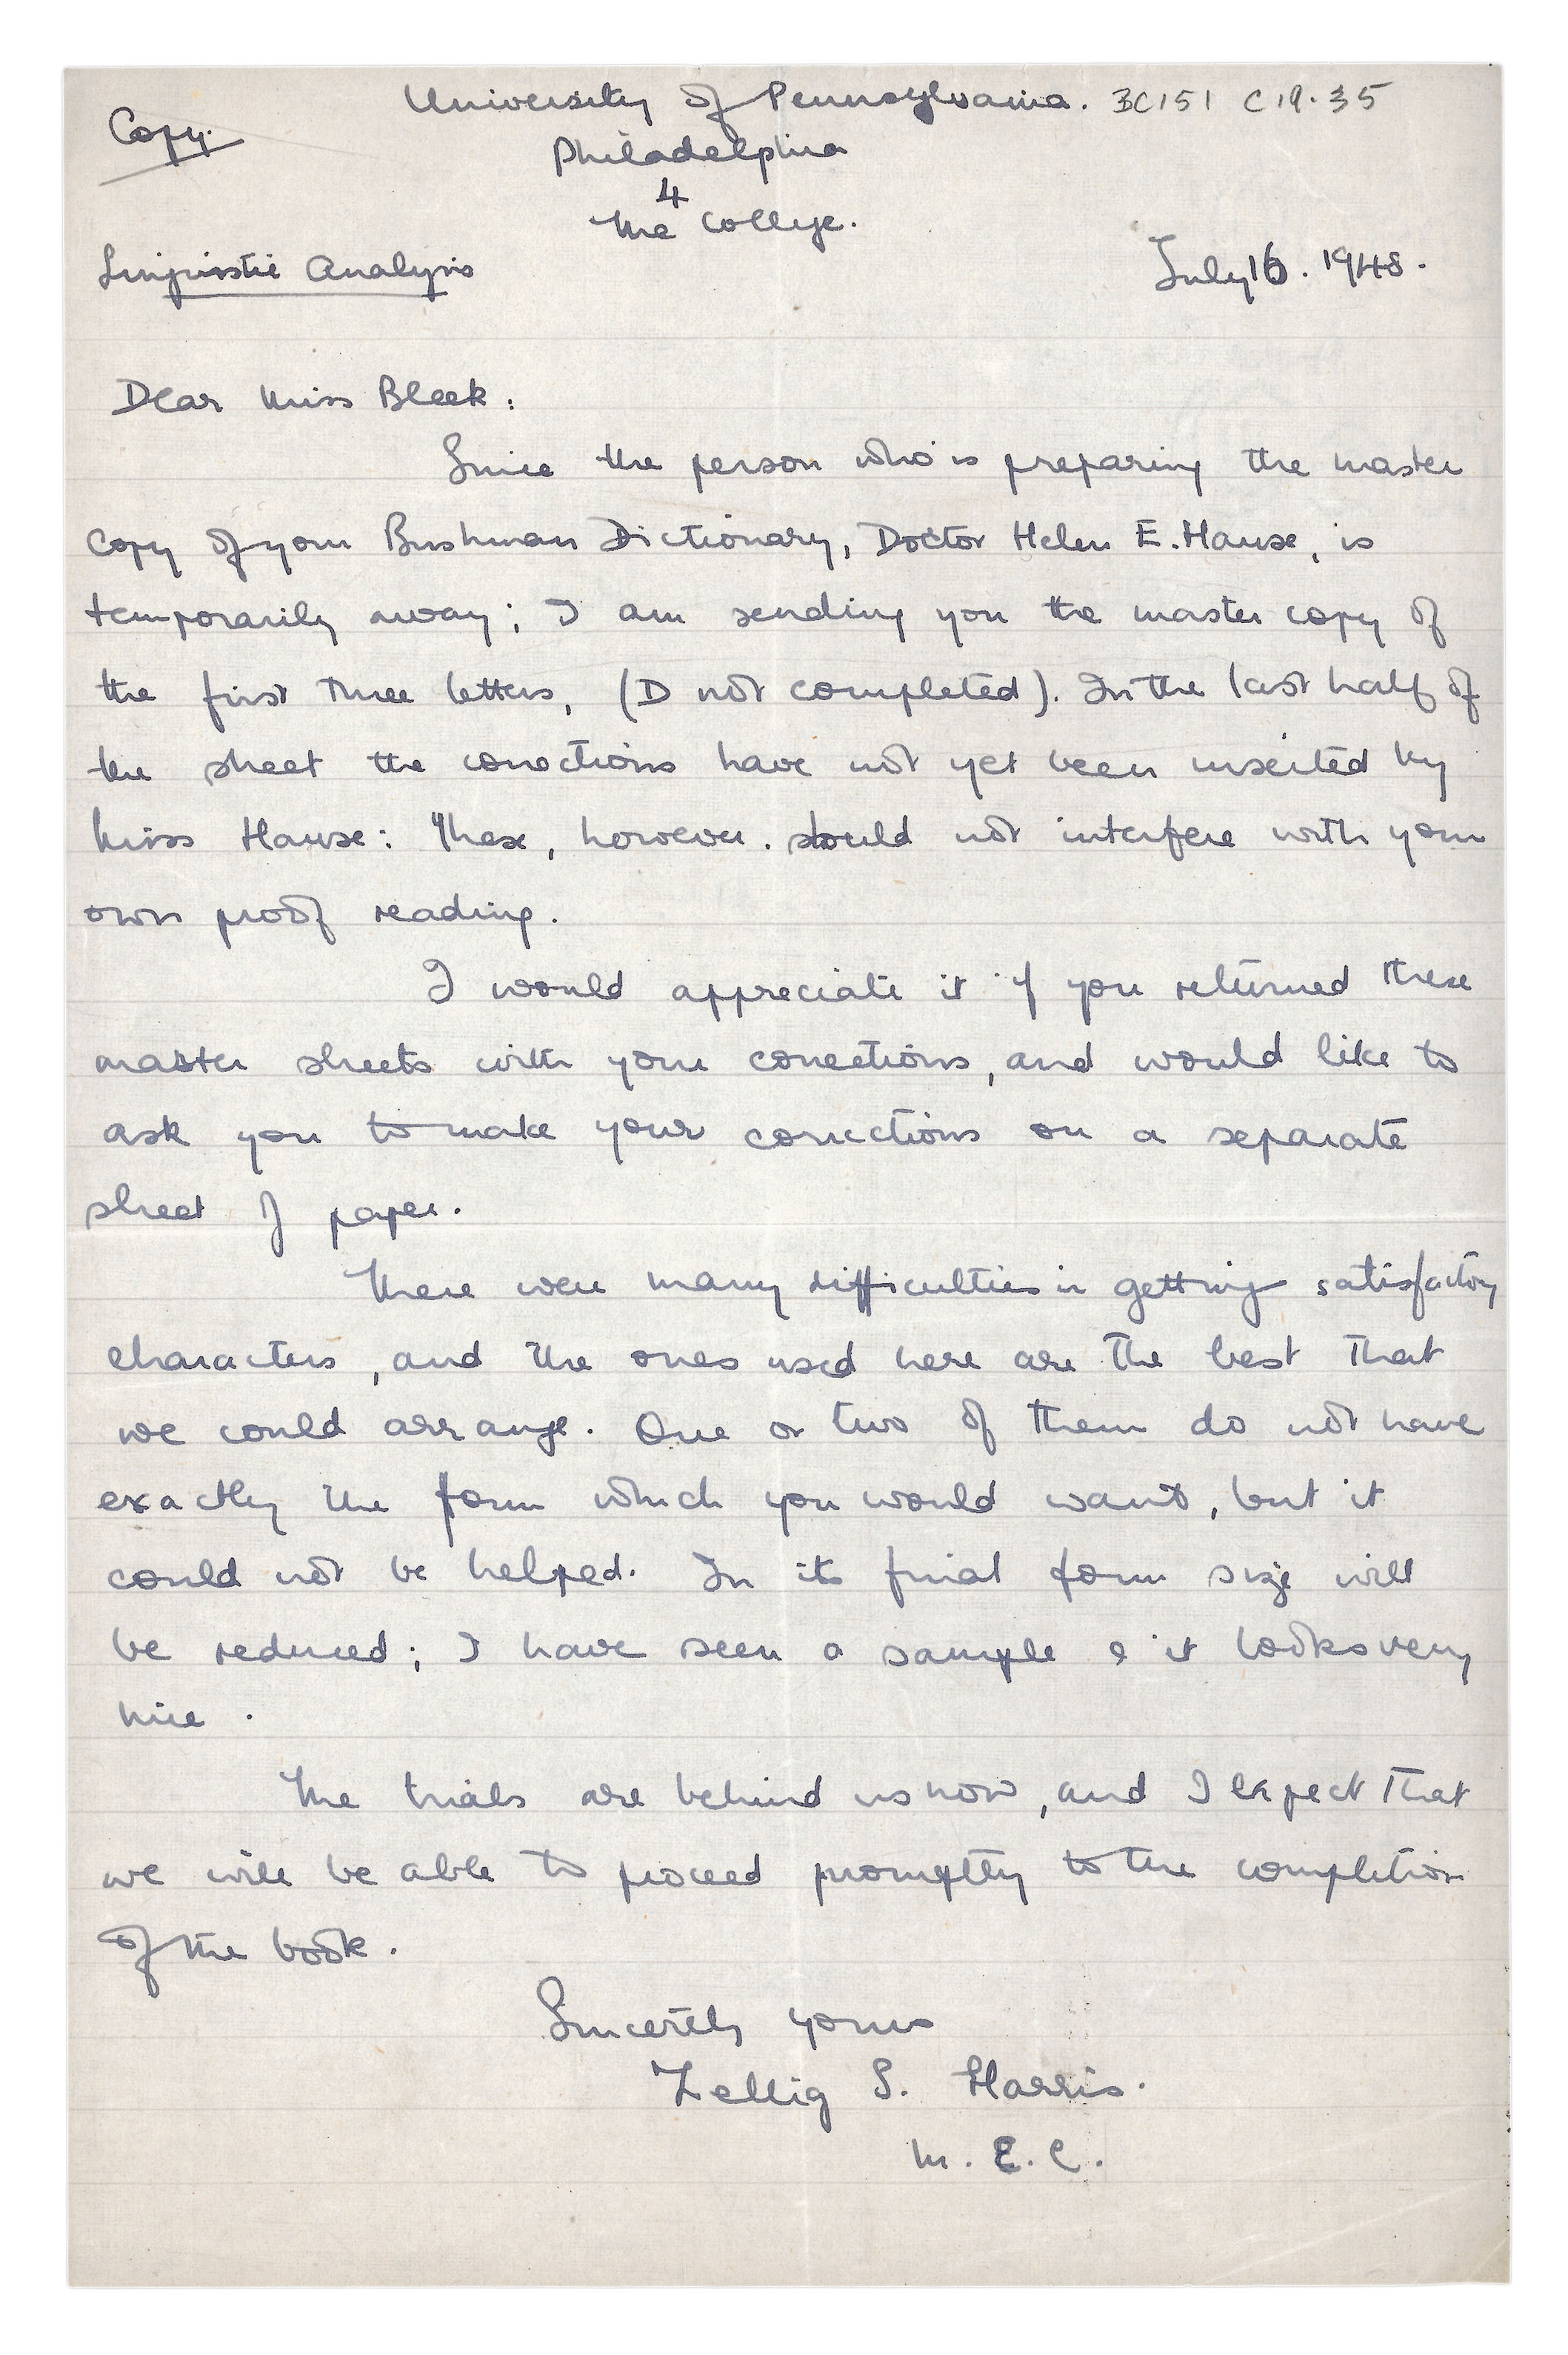 University of Pennsylvania. BC151 C19.35
Copy.
Philadelphia
4
The College.
Linguistic Analysis
July 16. 1948.
Dear Miss Bleek:
Since the person who is preparing the master
copy of your Bushman Dictionary, Doctor Helen E. Hause, is
temporarily away; I am sending you the master copy of
the first three letters, (D not completed). In the last half of
the sheet the corrections have not yet been inserted by
Miss Hause: These, however. should not interfere with your
own proof reading.
I would appreciate it if you returned these
master sheets with your corrections, and would like to
ask you to make your corrections on a separate
sheet of paper.
There were many difficulties in getting satisfactory
characters, and the ones used here are the best that
we could arrange. One or two of them do not have
exactly the form which you would want, but it
could not be helped. In its final form size will
be reduced; I have seen a sample & it looks very
nice.
The trials are behind us now, and I expect that
we will be able to proceed promptly to the completion
of the book.
Sincerely yours
Zellig S. Harris.
M. E. C.